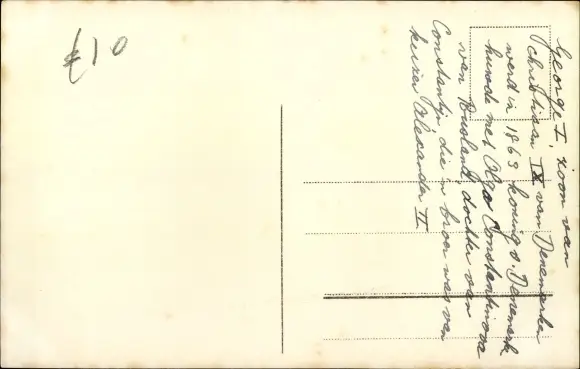 €10
George I, zoon van
Christiaan IX van Denemarken
werd in 1863 koning v. Denemark.
huwde met Olga Constantinova
van Rusland, dochter van
Constantijn, die 'n broer was van
keizer Alexander II